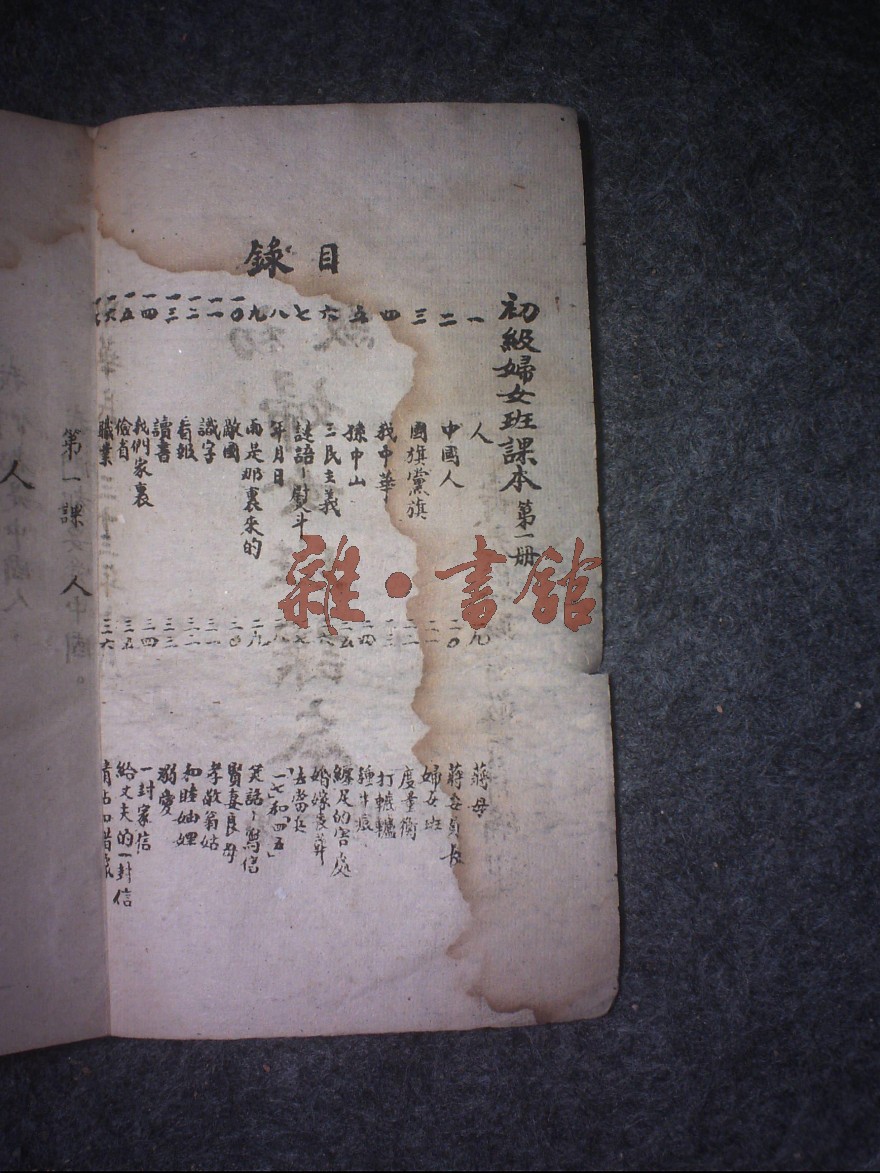 初級婦女班課本 第一册
目錄
一 人
二 中國人
三 國旗黨旗
四 我中華
五 孫中山
六 三民主義
七 謎語-熨斗
八 年月日
九 雨是那裏來的
一〇 敵國
一一 識字
一二 看報
一三 讀書
一四 我們家裏
一五 儉省
一六 職業
蔣母
二〇 蔣委員長
二一 婦女班
二二 度量衡
二三 打轆轤
二四 種牛痘
二五 纏足的害處
二六 婚嫁喪葬
二七 去當兵
二八 「一七」和「四五」
二九 笑話-寫信
三〇 賢妻良母
三一 孝敬翁姑
三二 和睦妯娌
三三 溺愛
三四 一封家信
三五 給丈夫的一封信
三六
第一課 人
人
雜·書館